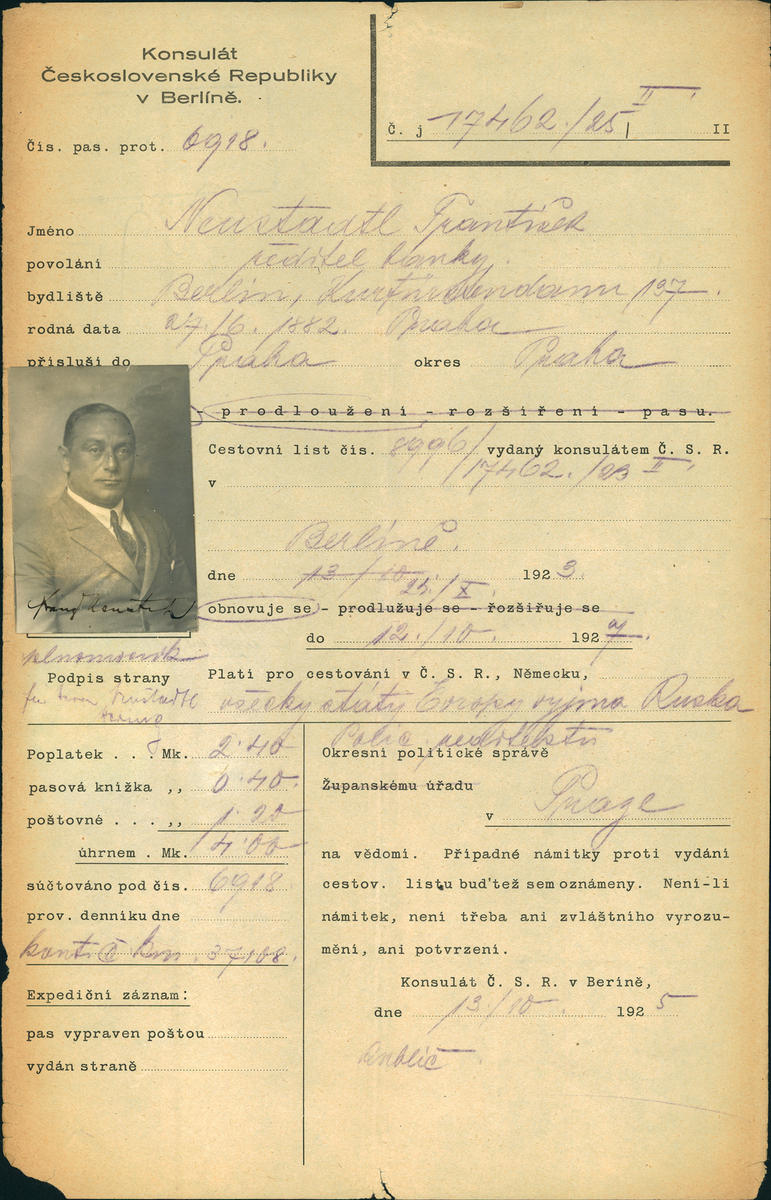 Konsulát
Československé Republiky
v Berlíně.
Č. j 17462./25 II
II
Čís. pas. prot. 6918.
Jméno Neustadtl František
povolání ředitel banky.
bydliště Berlin, Kurfürstendamm 197.
rodná data 27./6. 1882. Praha
přísluší do Praha okres Praha
- prodloužení - rozšíření - pasu.
Cestovní list čís. 8996/ vydaný konsulátem Č. S. R.
/17462./23 II.
v
Berlíně.
dne 13/10 1923.
25./X.
obnovuje se - prodlužuje se - rozšiřuje se
do 12./10. 1927.
Podpis strany
Platí pro cestování v Č. S. R., Německu,
všecky státy Evropy vyjma Ruska
Polic. ředitelství
Poplatek . . . Mk. 2·40
pasová knížka ,, 0·40
poštovné . . . ,, 1·20
úhrnem . Mk. 4·00
súčtováno pod čís. 6918
prov. denníku dne
37108.
Expediční záznam:
pas vypraven poštou
vydán straně
Okresní politické správě
Županskému úřadu
v Praze
na vědomí. Případné námitky proti vydání
cestov. listu buďtež sem oznámeny. Není-li
námitek, není třeba ani zvláštního vyrozu-
mění, ani potvrzení.
Konsulát Č. S. R. v Beríně,
dne 13./10. 1925